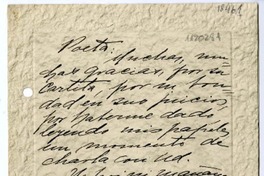 18461
Poeta: Muchas, mu-
chas gracias, por su
cartita, por su bon-
dad en sus juicios,
por haberme dado
leyendo mis papeles
un momento de
charla con Ud.